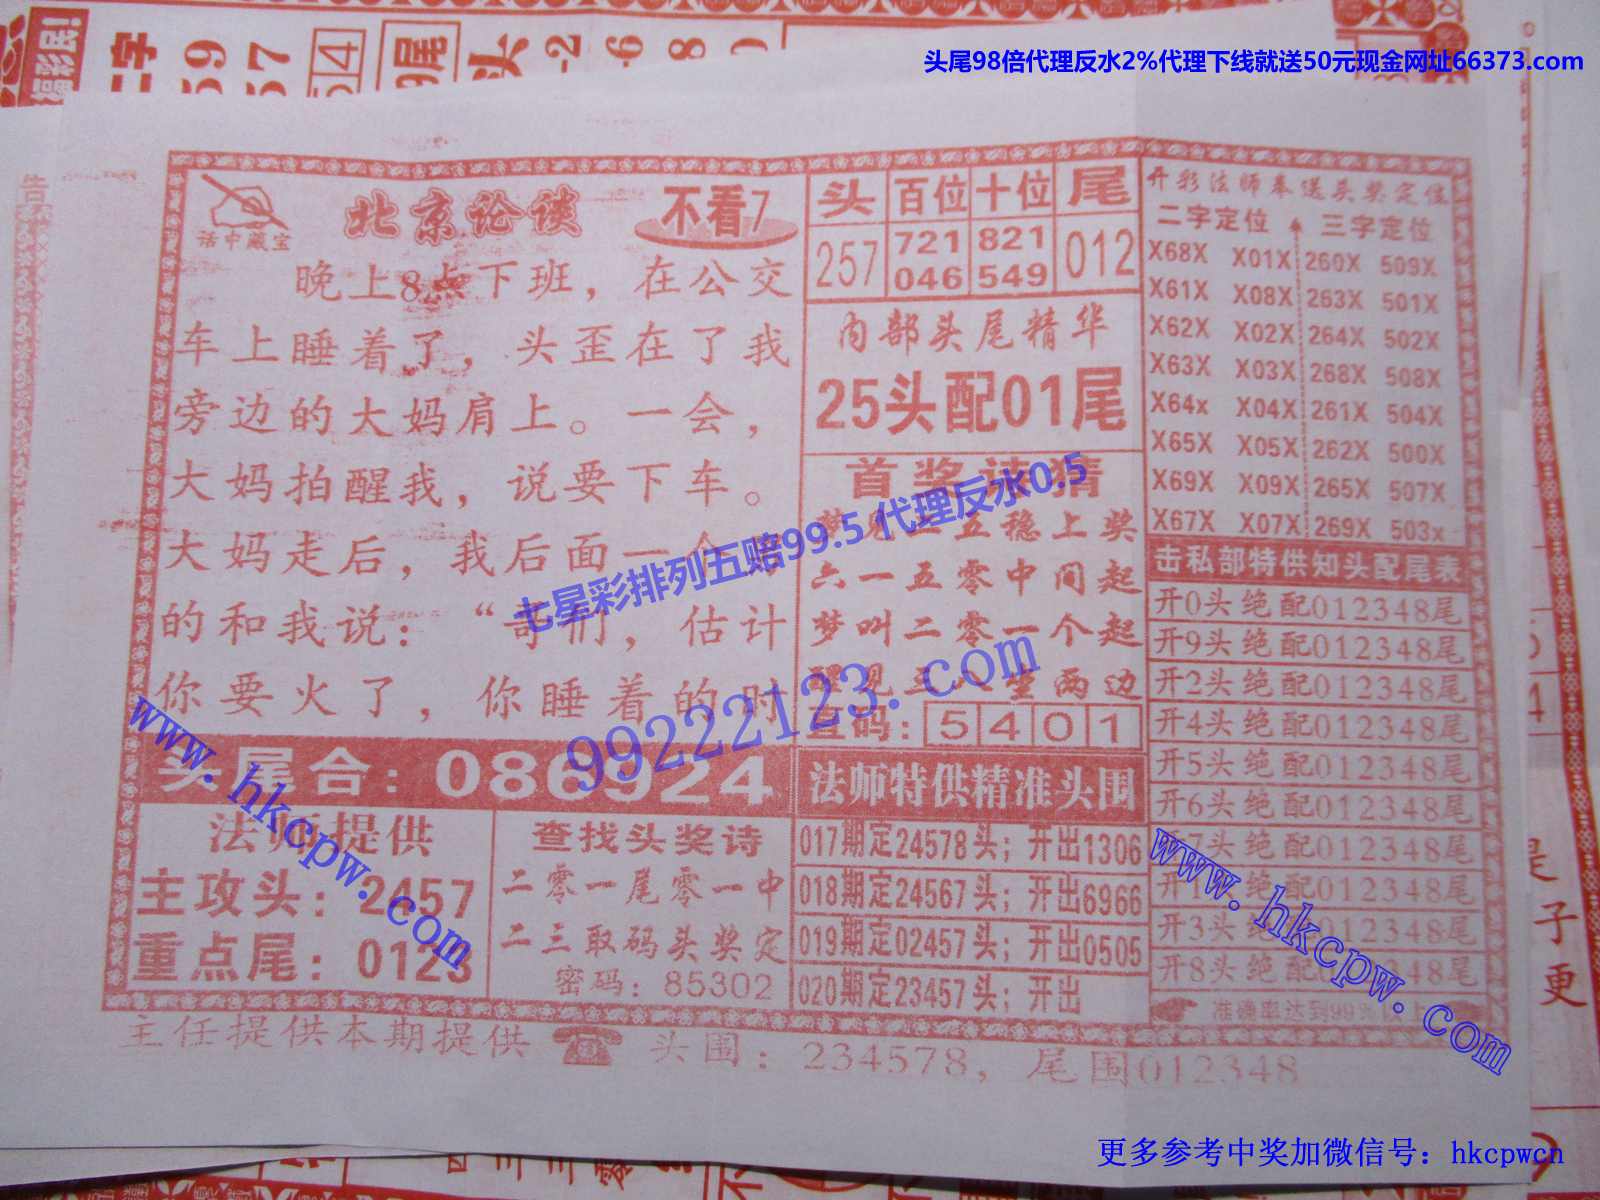 头尾98倍代理反水2%代理下线就送50元现金网址66373.com
彩民!
二字
59
57
54
9尾
头
-2
-6
8
告
话中藏宝
北京论谈
不看7
晚上8点下班，在公交
车上睡着了，头歪在了我
旁边的大妈肩上。一会，
大妈拍醒我，说要下车。
大妈走后，我后面一个
的和我说：“哥们，估计
你要火了，你睡着的时
头尾合：086924
法师提供
主攻头：2457
重点尾：0123
查找头奖诗
二零一尾零一中
二三取码头奖定
密码：85302
头 百位 十位 尾
257 721 821 012
046 549
内部头尾精华
25头配01尾
首奖诗猜
梦见二五稳上奖
六一五零中间起
梦叫二零一个起
两边
5401
法师特供精准头围
017期定24578头；开出1306
018期定24567头；开出6966
019期定02457头；开出0505
020期定23457头；开出
开彩法师奉送头奖定位
二字定位 三字定位
X68X X01X 260X 509X
X61X X08X 263X 501X
X62X X02X 264X 502X
X63X X03X 268X 508X
X64x X04X 261X 504X
X65X X05X 262X 500X
X69X X09X 265X 507X
X67X X07X 269X 503x
击私部特供知头配尾表
开0头绝配012348尾
开9头绝配012348尾
开2头绝配012348尾
开4头绝配012348尾
开5头绝配012348尾
开6头绝配012348尾
开7头绝配012348尾
开1头绝配012348尾
开3头绝配012348尾
开8头绝配012348尾
准确率达到99%以上
主任提供本期提供 头围：234578，尾围012348
七星彩排列五赔99.5 代理反水0.5
99222123.com
www.hkcpw.com
www.hkcpw.com
是
子
更
更多参考中奖加微信号：hkcpwcn